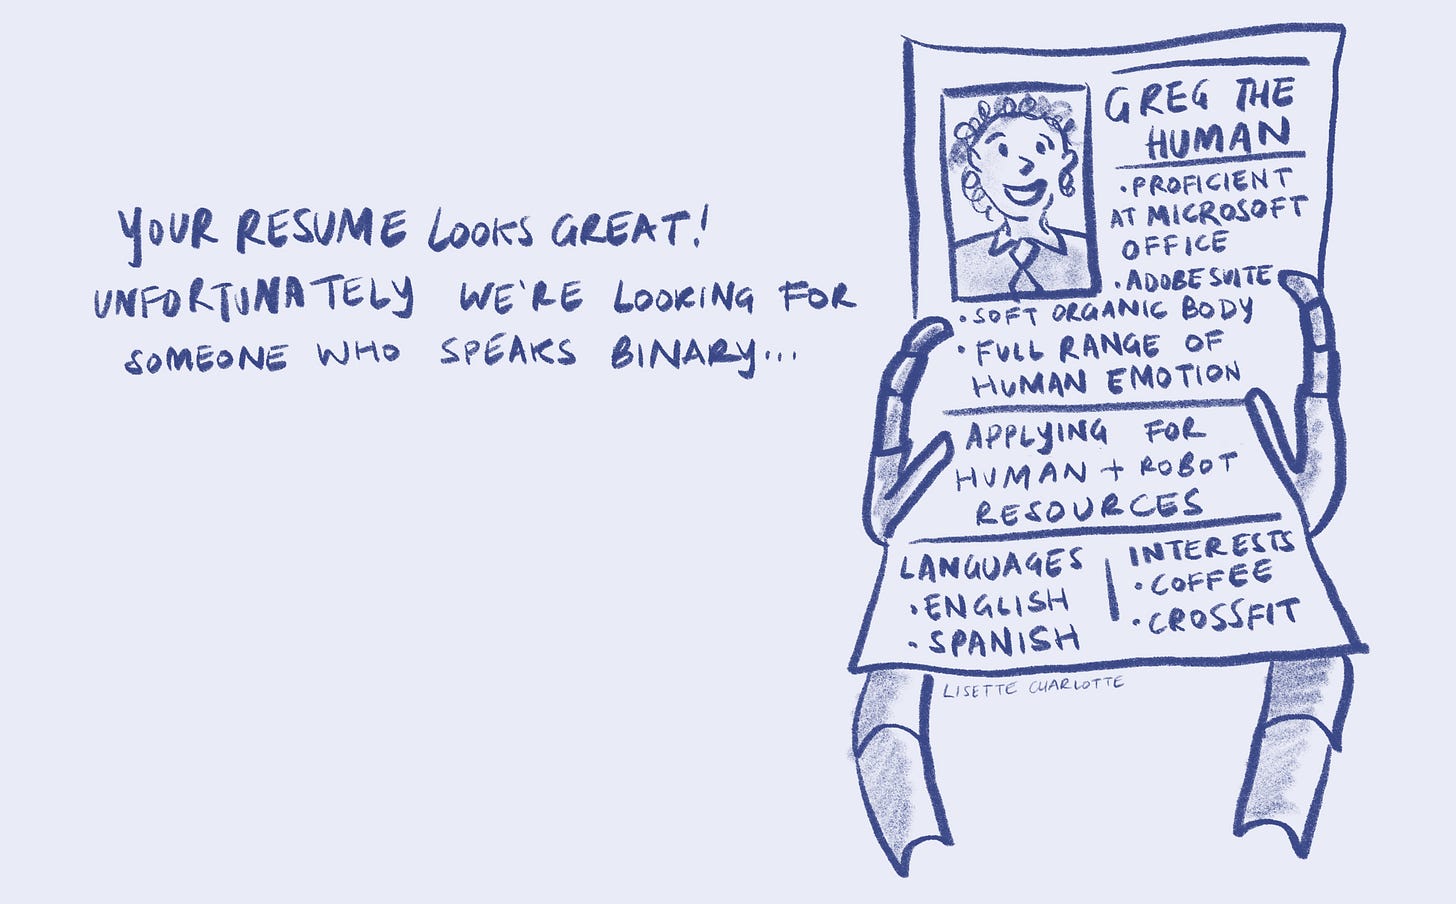 YOUR RESUME LOOKS GREAT!
UNFORTUNATELY WE'RE LOOKING FOR
SOMEONE WHO SPEAKS BINARY...
GREG THE
HUMAN
• PROFICIENT
AT MICROSOFT
OFFICE
• ADOBE SUITE
• SOFT ORGANIC BODY
• FULL RANGE OF
HUMAN EMOTION
APPLYING FOR
HUMAN + ROBOT
RESOURCES
LANGUAGES
• ENGLISH
• SPANISH
INTERESTS
• COFFEE
• CROSSFIT
LISETTE CHARLOTTE